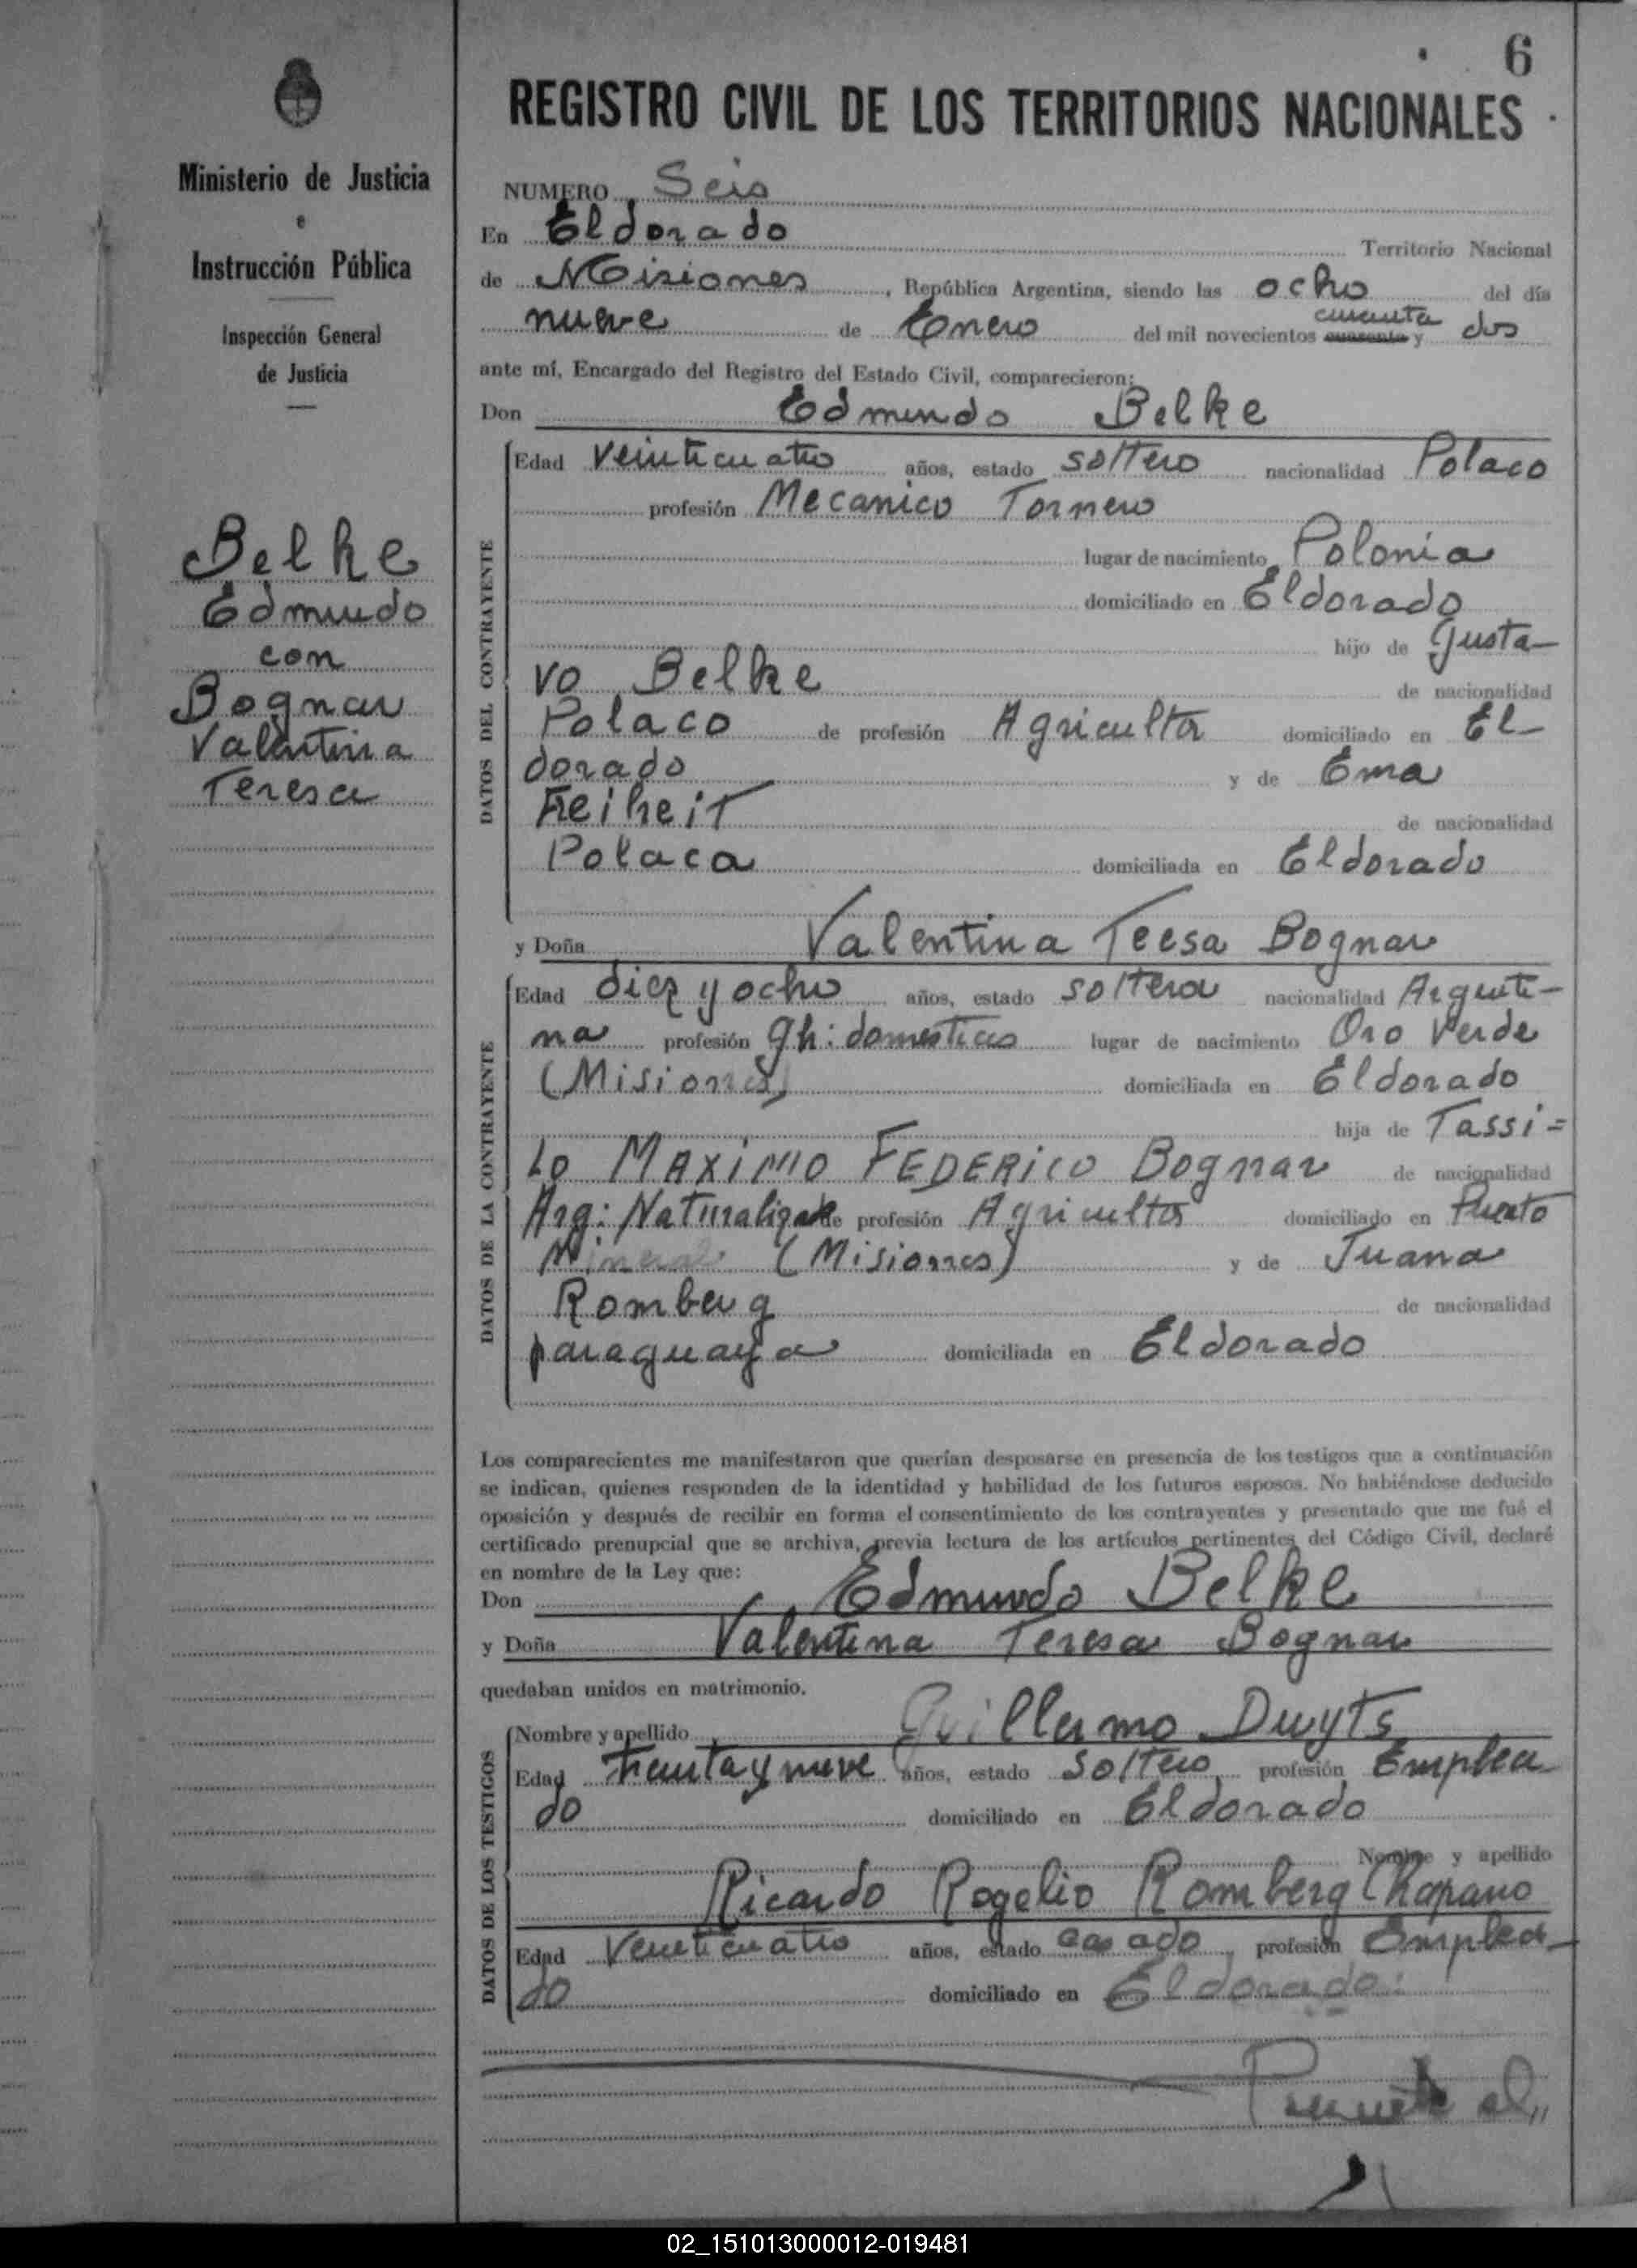 6
REGISTRO CIVIL DE LOS TERRITORIOS NACIONALES
Ministerio de Justicia
e
Instrucción Pública
Inspección General
de Justicia
Belke
Edmundo
con
Bognar
Valentina
Teresa
NUMERO Seis
En Eldorado Territorio Nacional
de Misiones, República Argentina, siendo las ocho del día
cuarenta
nueve de Enero del mil novecientos cuarenta y dos
ante mí, Encargado del Registro del Estado Civil, comparecieron:
Don Edmundo Belke
DATOS DEL CONTRAYENTE
Edad veinticuatro años, estado soltero nacionalidad Polaco
profesión Mecanico Tornero
lugar de nacimiento Polonia
domiciliado en Eldorado
hijo de Gusta-
vo Belke de nacionalidad
Polaco de profesión Agricultor domiciliado en El-
dorado y de Ema
Freiheit de nacionalidad
Polaca domiciliada en Eldorado
y Doña Valentina Teesa Bognar
DATOS DE LA CONTRAYENTE
Edad diez y ocho años, estado soltera nacionalidad Argenti-
na profesión qh: domesticos lugar de nacimiento Oro Verde
(Misiones) domiciliada en Eldorado
hija de Tassi=
lo MAXIMO FEDERICO Bognar de nacionalidad
Arg: Naturalizado de profesión Agricultor domiciliado en Puerto
Mineral (Misiones) y de Juana
Romberg de nacionalidad
paraguaya domiciliada en Eldorado
Los comparecientes me manifestaron que querían desposarse en presencia de los testigos que a continuación
se indican, quienes responden de la identidad y habilidad de los futuros esposos. No habiéndose deducido
oposición y después de recibir en forma el consentimiento de los contrayentes y presentado que me fué el
certificado prenupcial que se archiva, previa lectura de los artículos pertinentes del Código Civil, declaré
en nombre de la Ley que:
Don Edmundo Belke
y Doña Valentina Teresa Bognar
quedaban unidos en matrimonio.
DATOS DE LOS TESTIGOS
Nombre y apellido Guillermo Dwyts
Edad treinta y nueve años, estado soltero, profesión Emplea
do domiciliado en Eldorado
Nombre y apellido
Ricardo Rogelio Romberg Chaparro
Edad Veinticuatro años, estado casado, profesión Emplea-
do domiciliado en Eldorado:
02_151013000012-019481